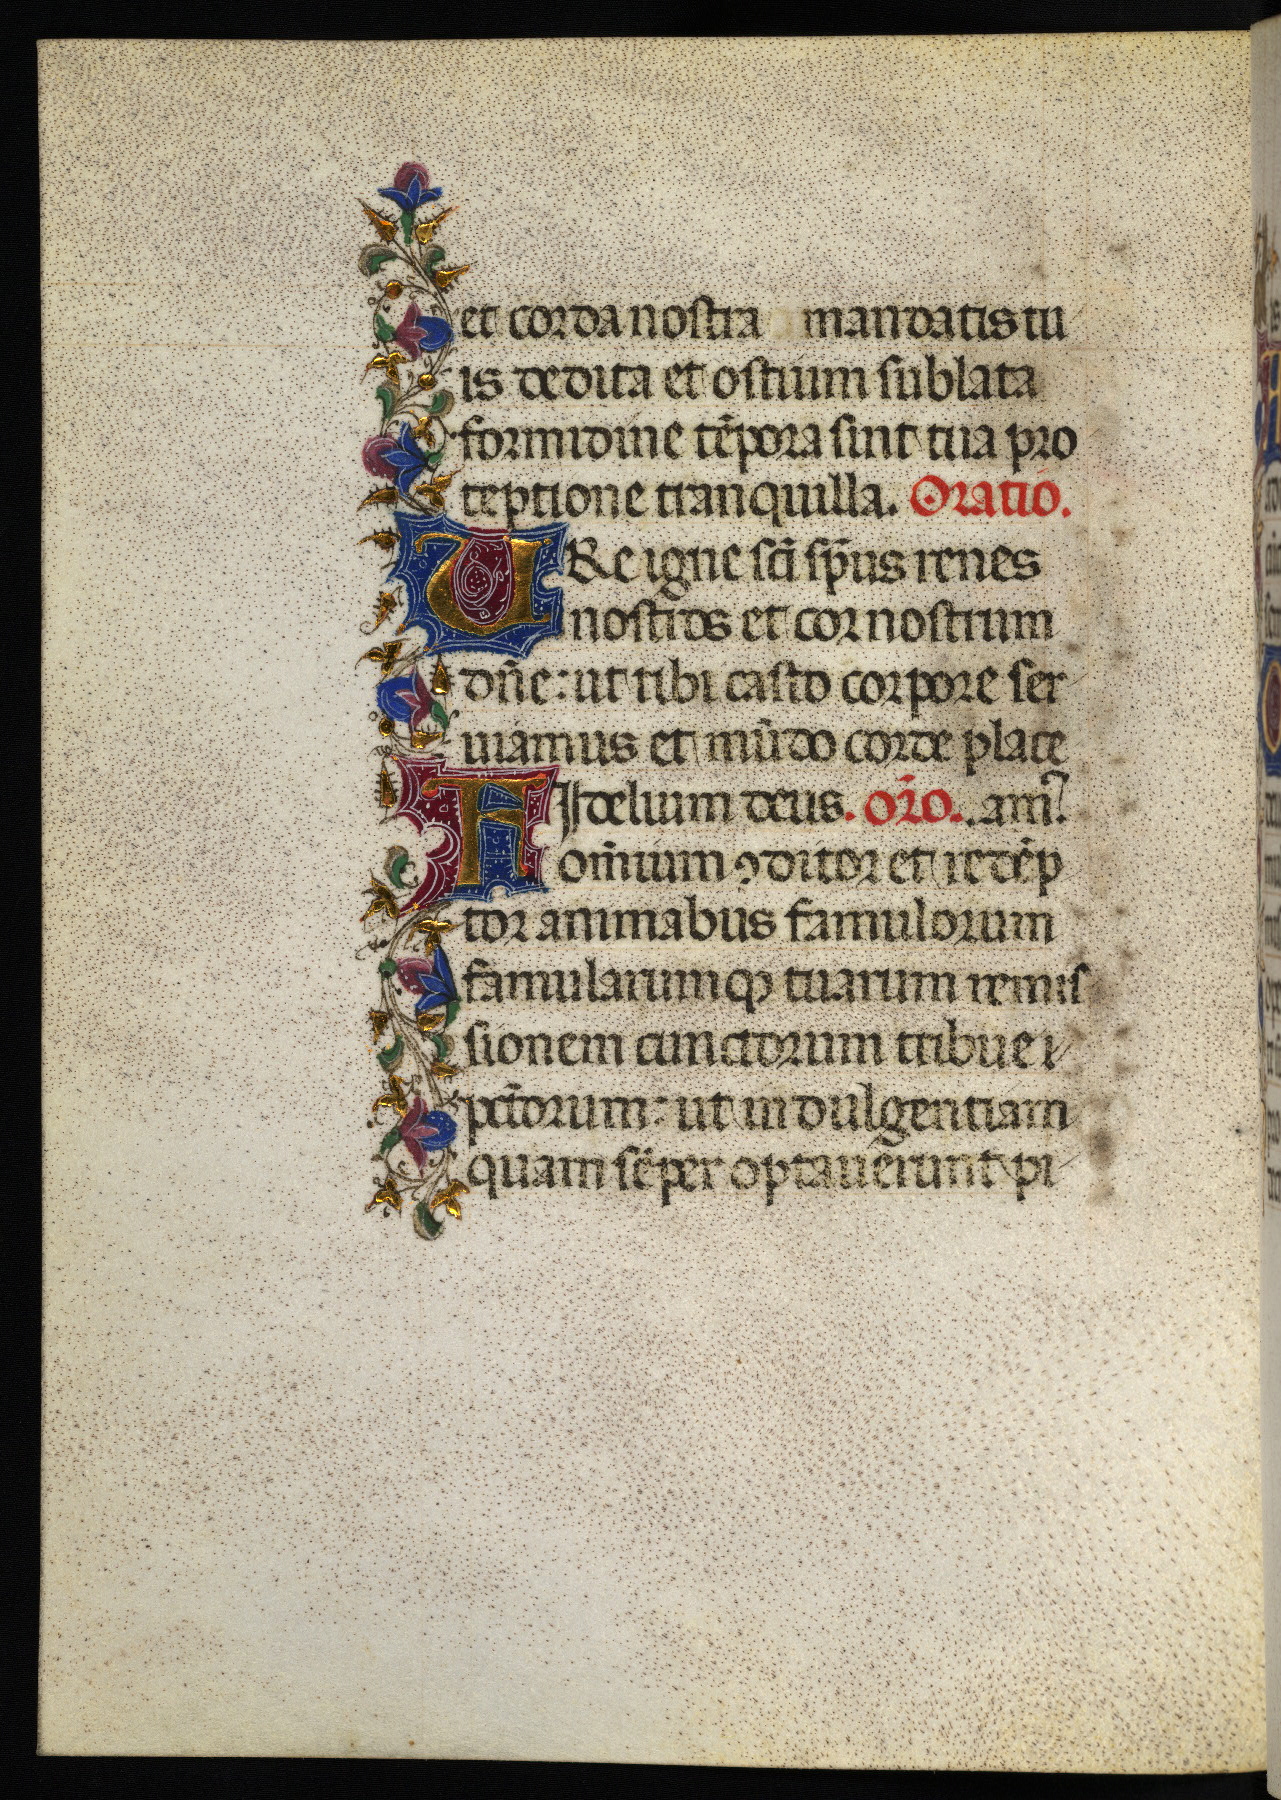 et corda nostra mandatis tu
is dedita et ostium sublata
formidine te̅pora sint tua pro
teptione tranquilla. Oratio.
URe igne sc̅i sp̅us renes
nostros et cor nostrum
dn̅e: ut tibi casto corpore ser
uiamus et mu̅do corde place
FIdelium deus. or̅o. am̅?
om̅ium ꝯditor et rede̅p
tor animabus famulorum
famularumqꝫ tuarum remis
sionem cunctorum tribue
pc̅torum: ut indulgentiam
quam se̅per optauerunt pi